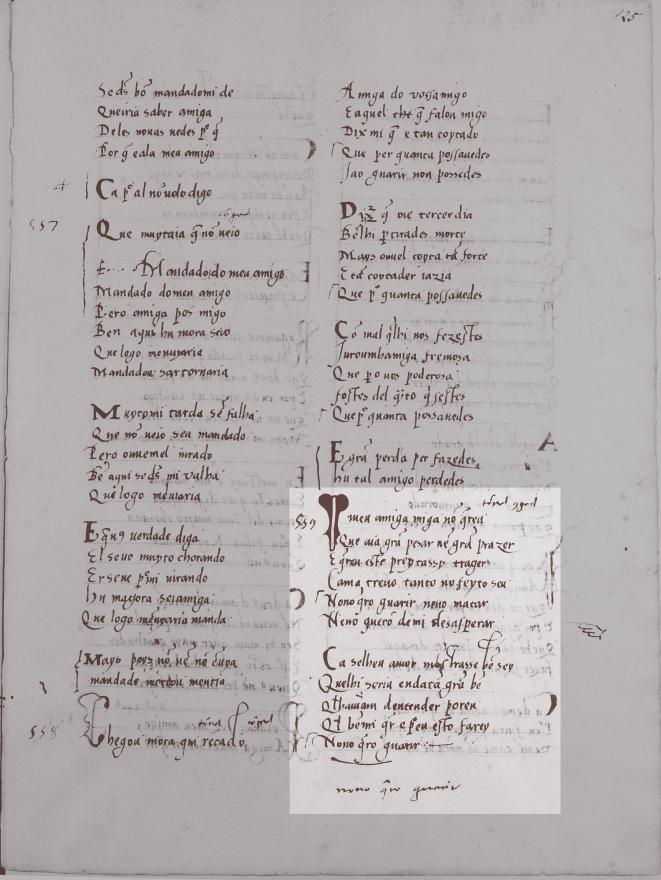 125
Se ds bõ mandadomi de
Queiria saber amiga
Deles nouas uedes pr q̃
Por q̃ e ala meu amigo
Ca pr al nõ uolo digo
557
Que muytaia q̃ nõ ueio
Mandado do meu amigo
Mandado do meu amigo
Pero amiga pos migo
Ben aqui hu mora seio
Que logo
Mandadou sar tornaria
Muytomi tarda sẽ falha
Que nõ ueio seu mandado
Pero ouuemel iurado
Bẽ aqui se ds mi valha
Que logo
E q̃ uerdade diga
El seue muyto chorando
Er seue pr mi iurando
Hu magora sei amiga
Que logo manda
Mays poys nõ uẽ nẽ
mandade mentia
558
Chegou mora qui recado
Amiga do vossamigo
E aquel che q̃ falou migo
Dix mi q̃ e tan coytado
Que per quanta possauedes
Jao guarir non podedes
Diz q̃ oie tercer dia
Bẽ lhi partirades morte
Mays ouuel coyta tã forte
E tã coytader iazia
Que pr quanta possauedes
Cõ mal q̃ lhi uos fezestes
Juroumhamiga fremosa
Que pero uos poderosa
fostes del q̃ito q̃sestes
Que pr quanta possauedes
E grã perda per fazedes
hu tal amigo perdedes
559
meu amiga miga nõ q̃rea
Que aia grã pesar nẽ grã prazer
E q̃reu este preytassy trager
Ca macreuo tanto no feyto seu
Nono q̃ro guarir neno matar
Nẽno quero de mi desasperar
Ca selheu amor mostrasse bẽ sey
Quelhi seria endatã grã bẽ
Qlhauiam dentender poren
Ql bẽ mi q̃r e pr eu esto farey
Nono q̃ro guarir
nono q̃ro guarir